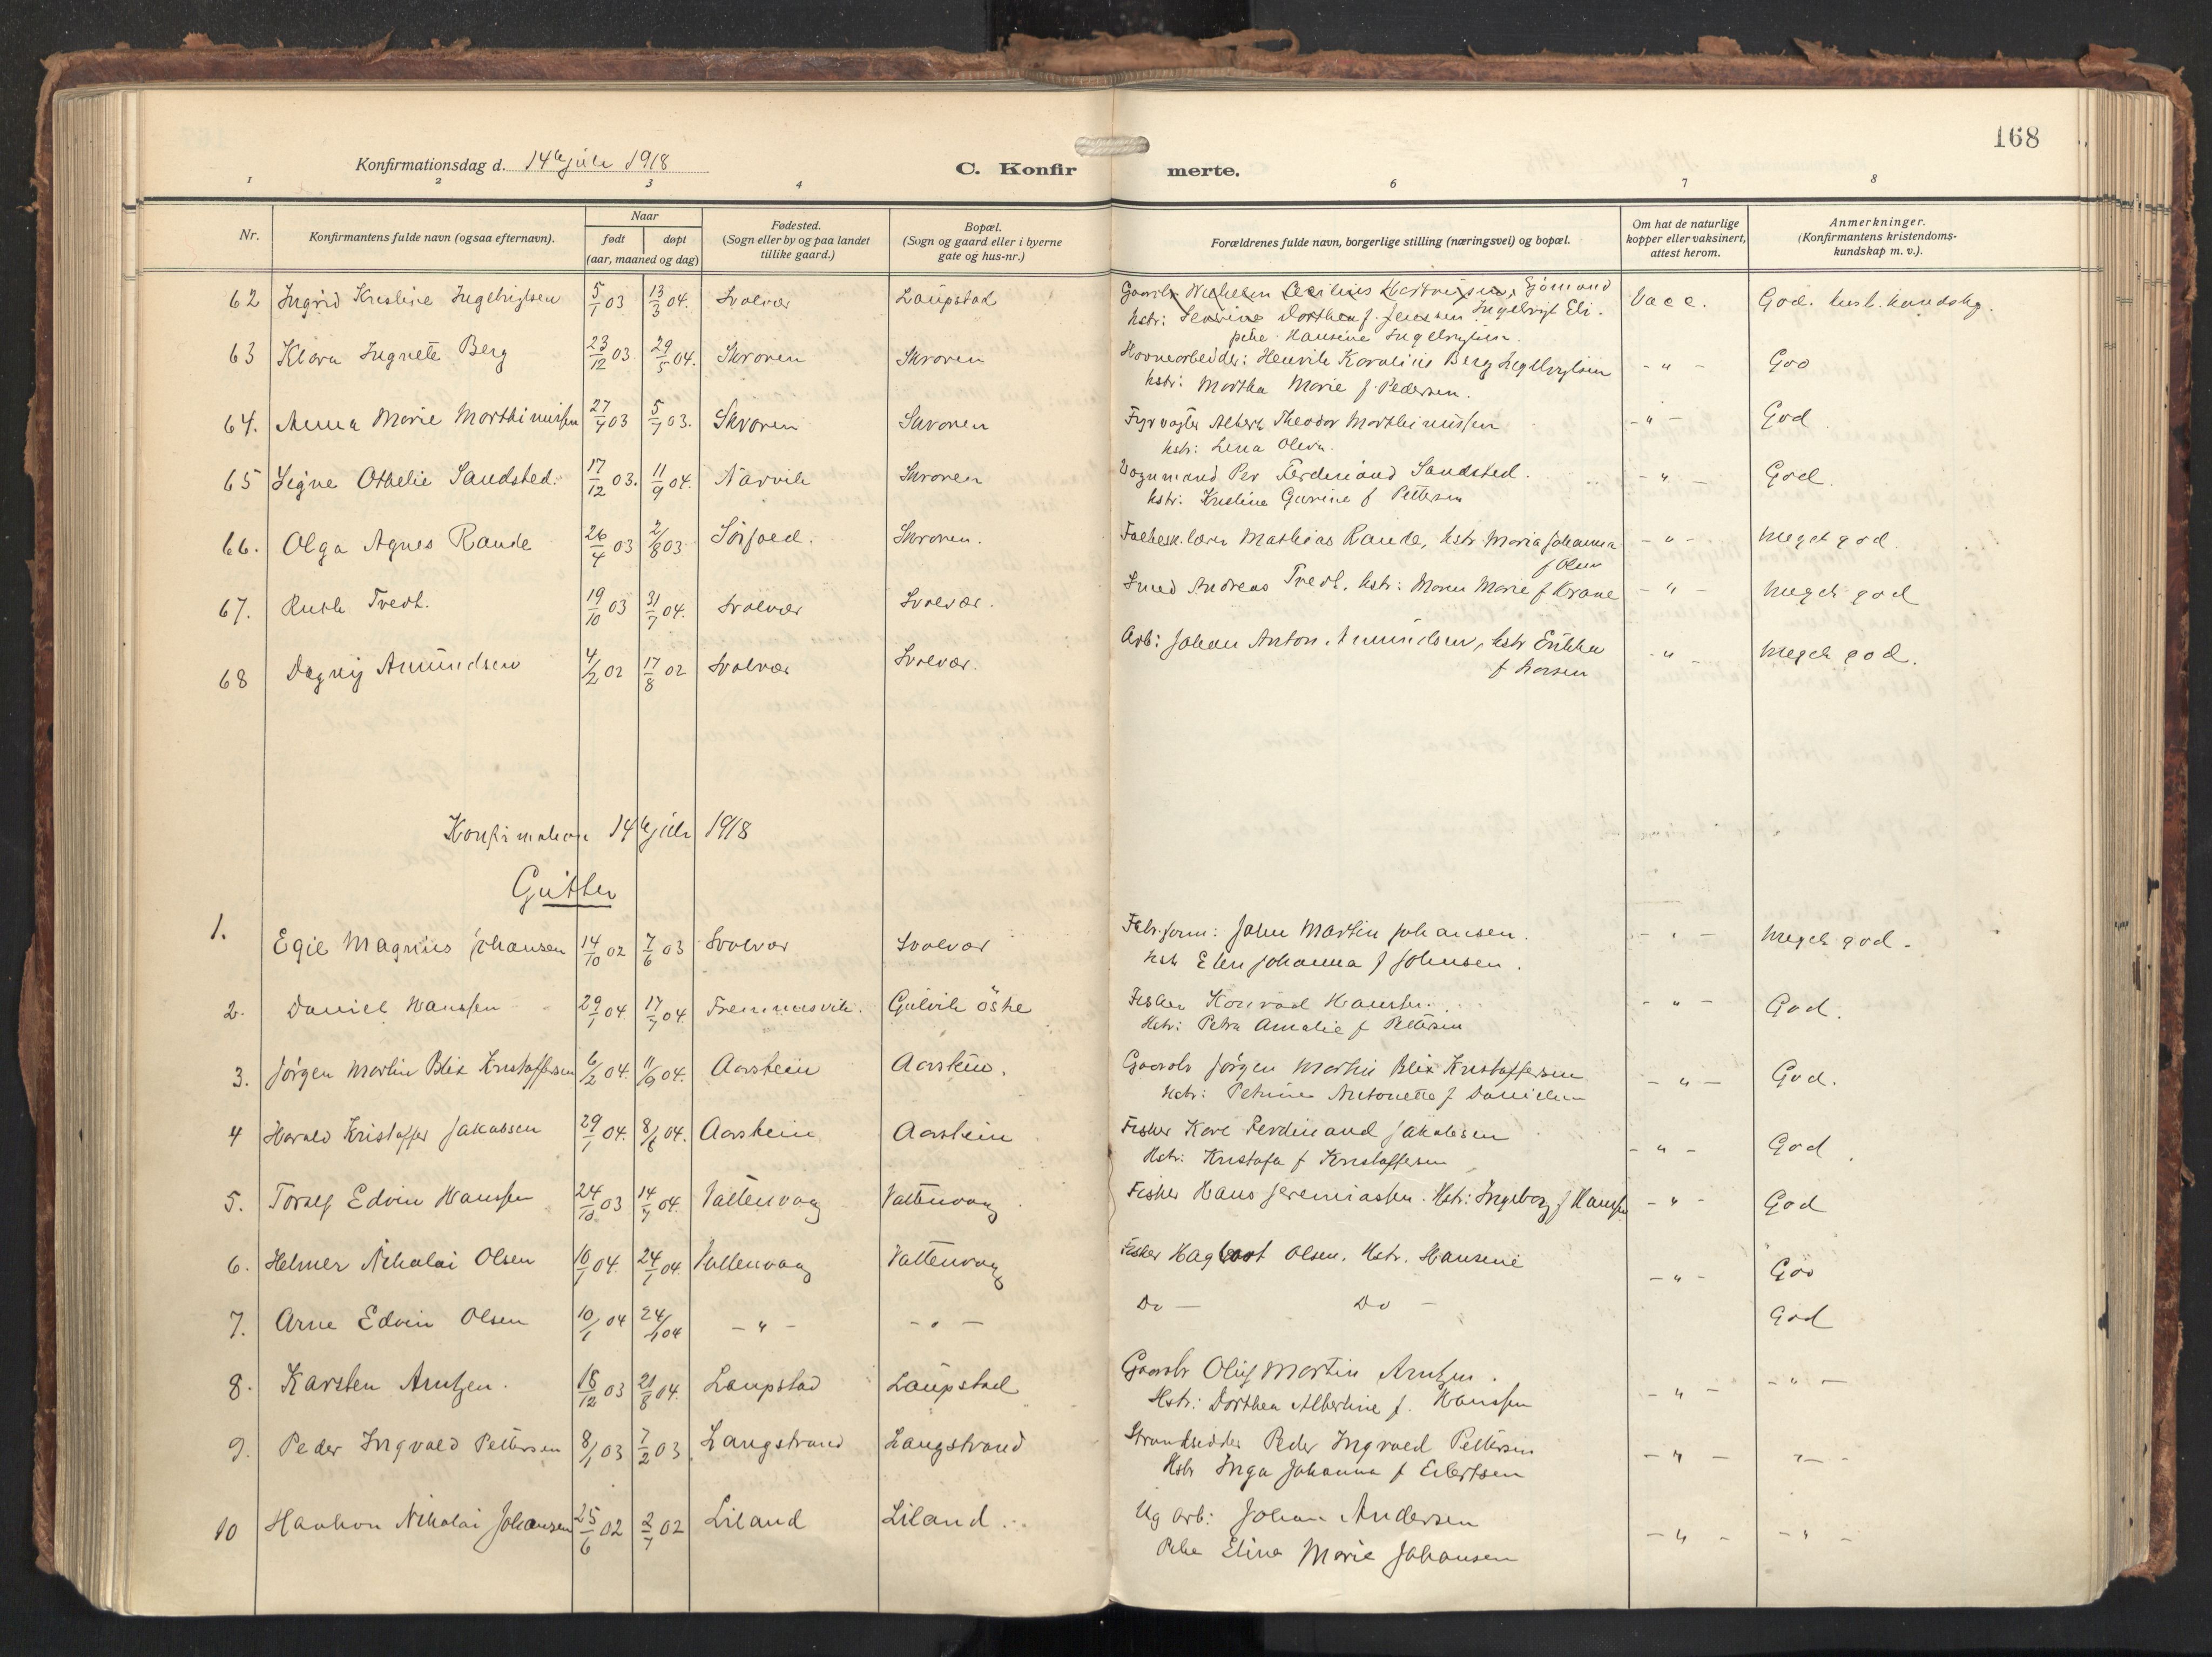 168
Konfirmationsdag d. 14de juli 1918
C. Konfirmerte.
1 2 3 4 6 7 8
Nr.
Konfirmantens fulde navn (ogsaa efternavn).
Naar
født døpt
(aar, maaned og dag)
Fødested.
(Sogn eller by og paa landet
tillike gaard.)
Bopæl.
(Sogn og gaard eller i byerne
gate og hus-nr.)
Forældrenes fulde navn, borgerlige stilling (næringsvei) og bopæl.
Om hat de naturlige
kopper eller vaksinert,
attest herom.
Anmerkninger.
(Konfirmantens kristendoms-
kundskap m. v.).
62 Ingrid Kristine Ingebrigtsen 5/1 03 13/3 04. Svolvær Laupstad Gaardbr Wilhelm Cecilius Martinussen, Sjömand Vacc. God. krist. kundskap.
hstr: Severine Dorthea f. Jenssen Ingebrigt Eli.
pike Hansine Ingebrigtsen.
63 Klara Ingnete Berg 23/12 03 29/5 04. Skroven Skroven Havnearbeider: Henrik Karolius Berg Ingebrigtsen - " - God
hstr: Martha Marie f. Pedersen.
64. Anna Marie Marthinussen 27/4 03 5/7 03. Skroven Skroven Fyrvogter Albert Theodor Marthinussen - " - God
hstr: Lena Olsen.
65 Signe Othelie Sandsted. 17/12 03. 11/9 04. Narvik Skroven Vognmand Per Ferdinand Sandsted. - " - God.
hstr: Kristine Gurine f Pettersen
66. Olga Agnes Rande 26/4 03 2/8 03 Sörfold. Skroven. Folkesk. lærer Mathias Rande, hstr Maria Johanna - " - Meget god
f Olsen
67. Ruth Tvedt. 19/10 03 31/7 04. Svolvær Svolvær. Smed Andreas Tvedt. hstr: Maren Marie f Krane - " - Meget god
68 Dagny Amundsen 4/2 02 17/8 02 Svolvær Svolvær. Arb: Johan Anton Amundsen, hstr Erikka - " - Meget god.
f Larsen
Konfirmation 14de juli 1918
Gutter
1. Egil Magnus Johansen 14/10 02 7/6 03 Svolvær Svolvær Fabr.form: John Martin Johansen. - " - Meget god.
hstr Elen Johanna f Johnsen.
2. Daniel Hanssen 29/1 04 17/7 04. Fremmesvik. Gulvik östre Fisker Konrad Hanssen. - " - God.
Hstr: Petra Amalie f Pettersen
3. Jörgen Martin Blix Kristoffersen 6/2 04. 11/9 04. Aarstein Aarstein. Gaardbr Jörgen Martin Blix Kristoffersen - " - God.
Hstr: Petrine Antonette f Danielsen
4 Harald Kristoffer Jakobsen 29/1 04. 8/6 04. Aarstein Aarstein Fisker Karl Ferdinand Jakobsen - " - God.
Hstr: Kristofa f Kristoffersen
5. Toralf Edvin Hanssen 24/10 03 14/7 04. Vattervaag Vattervaag Fisker Hans Jeremiassen. Hstr: Ingeborg f Hanssen - " - God
6. Helmer Nikolai Olsen 10/1 04. 24/1 04. Vattervaag Vattervaag Fisker Hagbart Olsen. Hstr. Hansine - " - God
7. Arne Edvin Olsen 10/1 04 24/1 04 - " - - " - Do - Do - God
8. Karsten Arntzen. 18/12 03 21/8 04. Laupstad Laupstad Gaardbr Oluf Martin Arntzen. - " - - " -
Hstr: Dorthea Albertine f. Hanssen
9. Peder Ingvald Pettersen 8/1 03 7/2 03 Langstrand Langstrand Strandsidder Peder Ingvald Pettersen - " - " - -
Hstr Inga Johanna f Eilertsen
10 Haakon Nikolai Johansen 25/6 02 2/7 02 Liland Liland. Ug arb: Johan Andersen - " - - " -
Pike Elina Marie Johansen